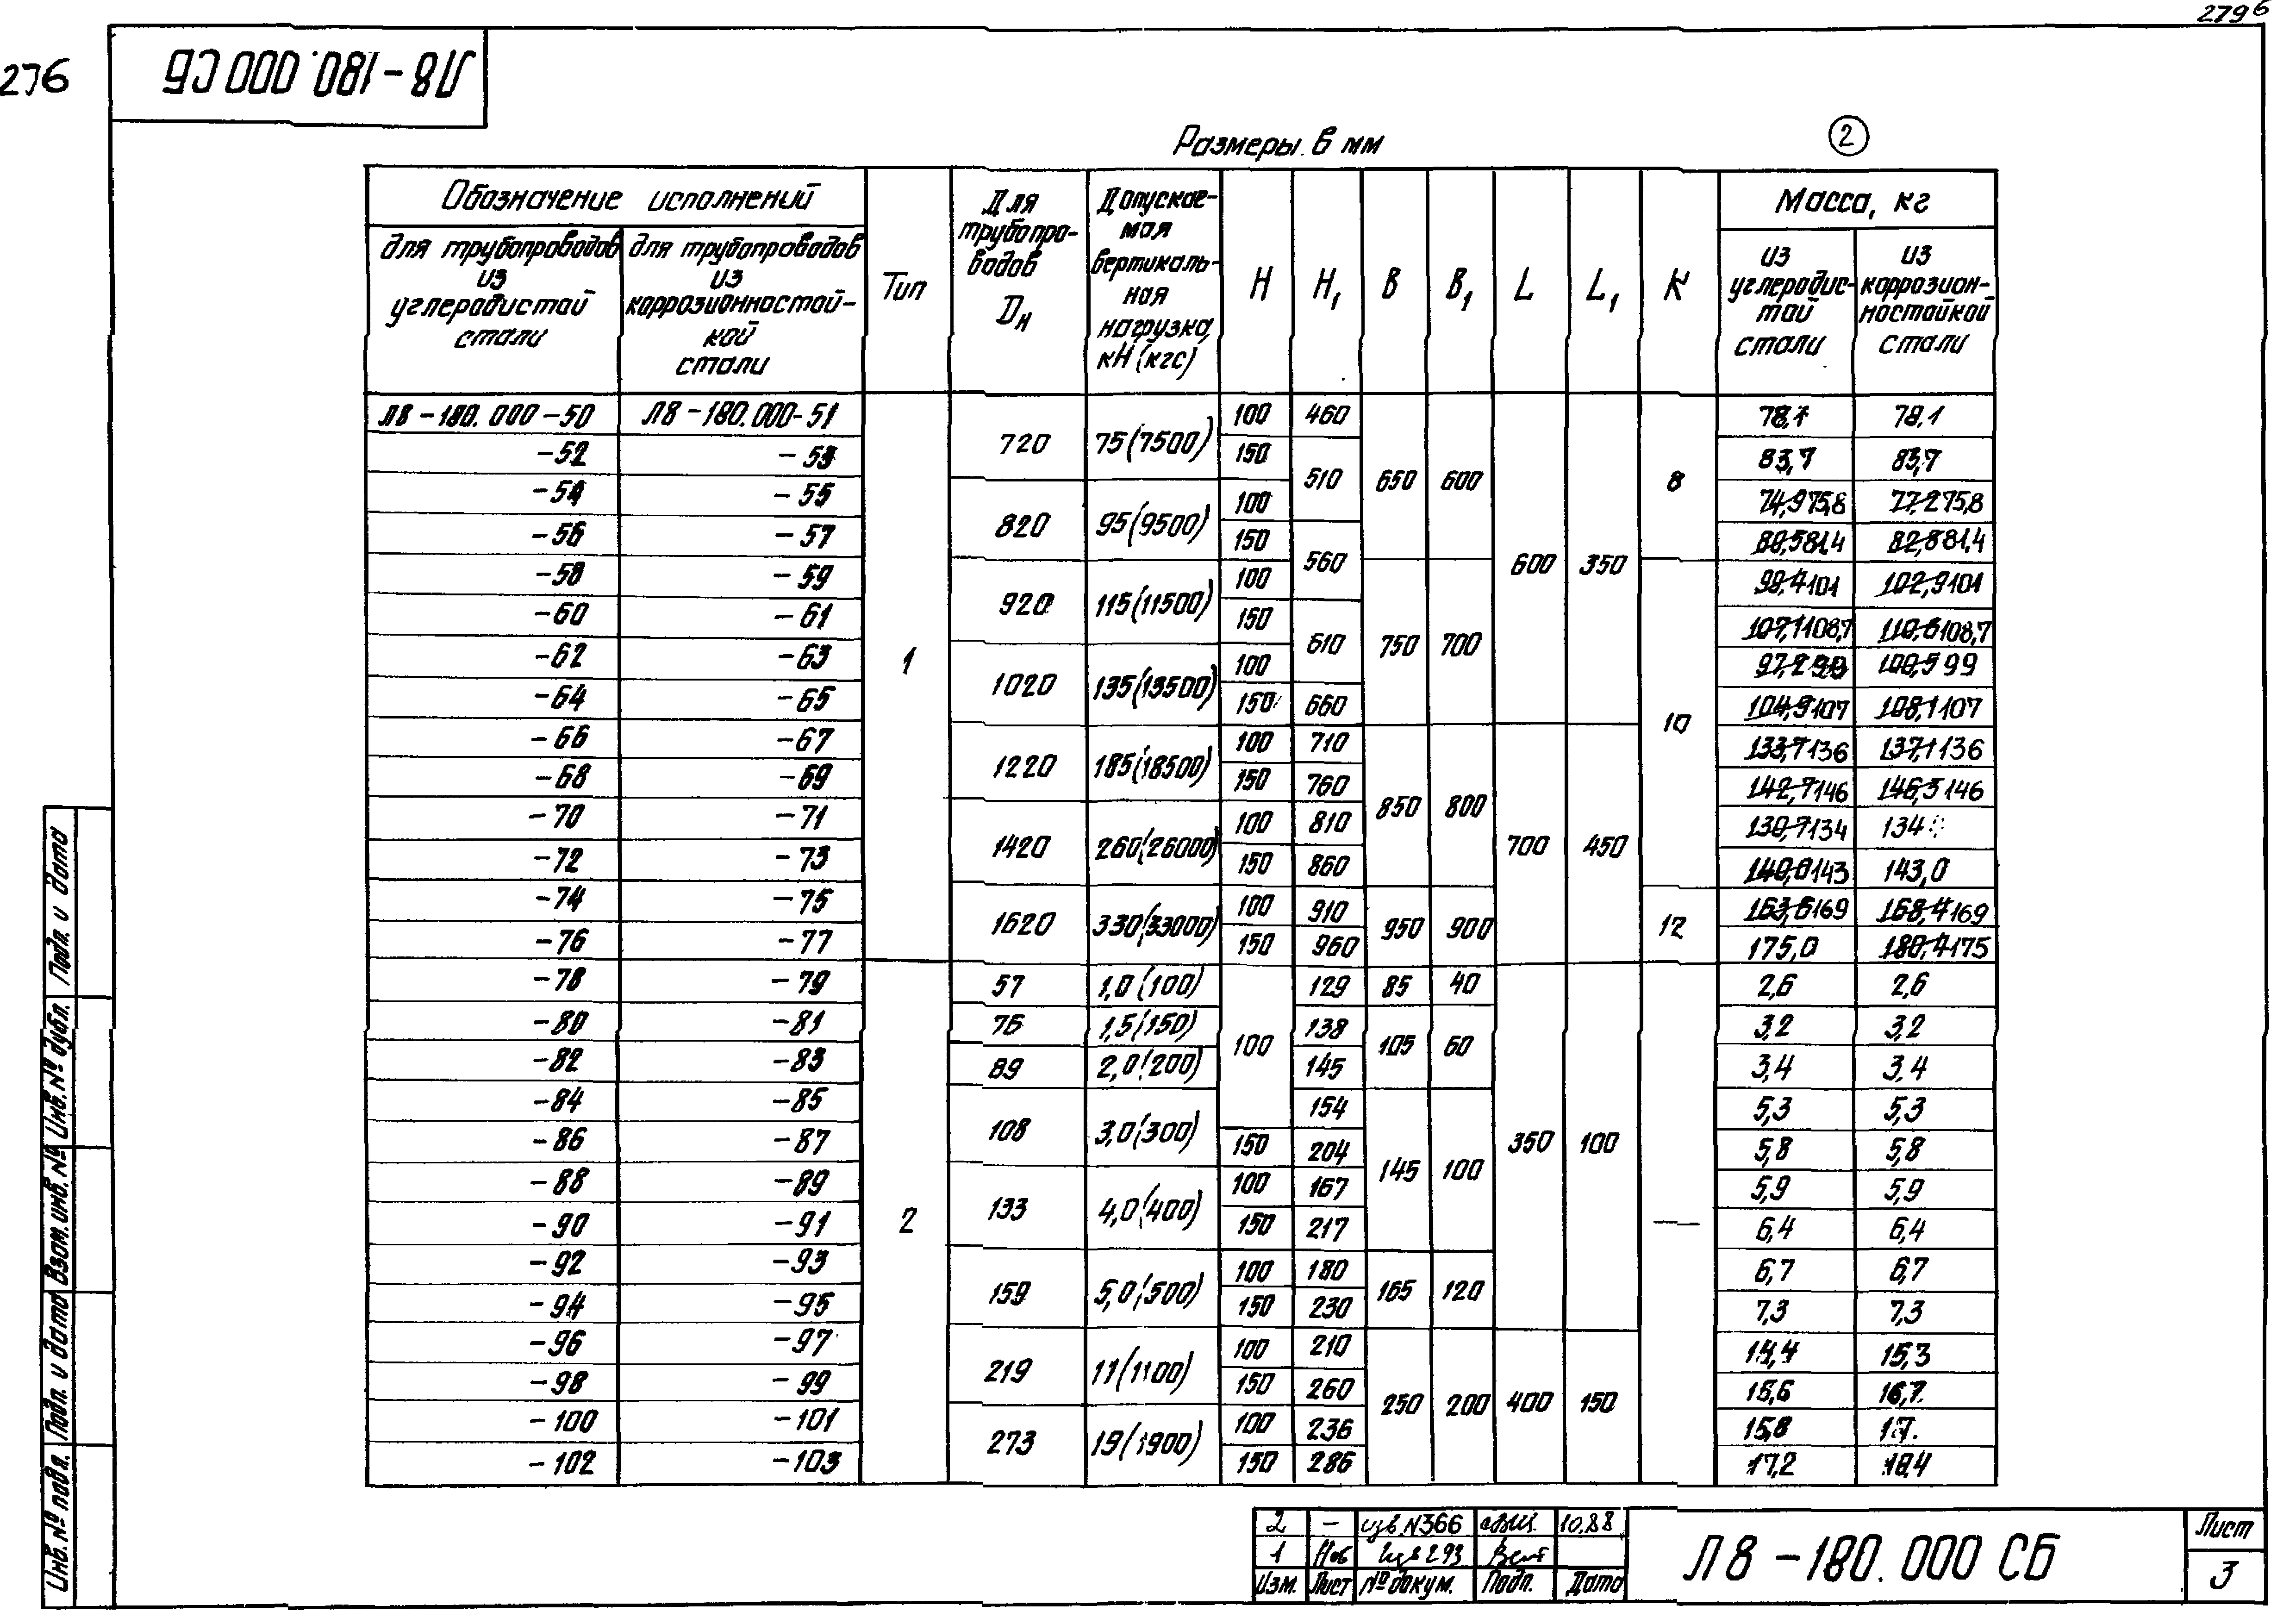 279б
276
Л8-180.000СБ
Размеры в мм
2
Обозначение исполнений
для трубопроводов из углеродистой стали
для трубопроводов из коррозионностой-кой стали
Тип
Для трубопро-водов Dн
Допускае-мая вертикаль-ная нагрузка, кН (кгс)
H
H1
B
B1
L
L1
K
Масса, кг
из углеродис-той стали
из коррозион-ностойкой стали
Л8-180.000-50 Л8-180.000-51 1 720 75(7500) 100 460 650 600 600 350 8 78,1 78,1
-52 -53 150 510 83,7 83,7
-54 -55 820 95(9500) 100 74,9 75,8 77,2 75,8
-56 -57 150 560 80,5 81,4 82,8 81,4
-58 -59 920 115(11500) 100 750 700 10 98,4 101 102,9 101
-60 -61 150 610 107,1 108,7 110,6 108,7
-62 -63 1020 135(13500) 100 97,2 99 100,5 99
-64 -65 150 660 104,9 107 108,1 107
-66 -67 1220 185(18500) 100 710 850 800 700 450 133,7 136 137,1 136
-68 -69 150 760 142,7 146 146,3 146
-70 -71 1420 260(26000) 100 810 130,7 134 134
-72 -73 150 860 140,0 143 143,0
-74 -75 1620 330(33000) 100 910 950 900 12 163,6 169 168,4 169
-76 -77 150 960 175,0 180,4 175
-78 -79 2 57 1,0(100) 100 129 85 40 350 100 — 2,6 2,6
-80 -81 76 1,5(150) 138 105 60 3,2 3,2
-82 -83 89 2,0(200) 145 3,4 3,4
-84 -85 108 3,0(300) 154 145 100 5,3 5,3
-86 -87 150 204 5,8 5,8
-88 -89 133 4,0(400) 100 167 5,9 5,9
-90 -91 150 217 6,4 6,4
-92 -93 159 5,0(500) 100 180 165 120 6,7 6,7
-94 -95 150 230 7,3 7,3
-96 -97 219 11(1100) 100 210 250 200 400 150 14,4 15,3
-98 -99 150 260 15,6 16,7
-100 -101 273 19(1900) 100 236 15,8 17
-102 -103 150 286 17,2 18,4
Подп. и дата
Инв.№ дубл.
Взам.инв.№
Подп. и дата
Инв.№ подл.
2 – изв N366 10.88
1 Нов Изв 293
Изм. Лист № докум. Подп. Дата
Л8-180.000 СБ
Лист
3